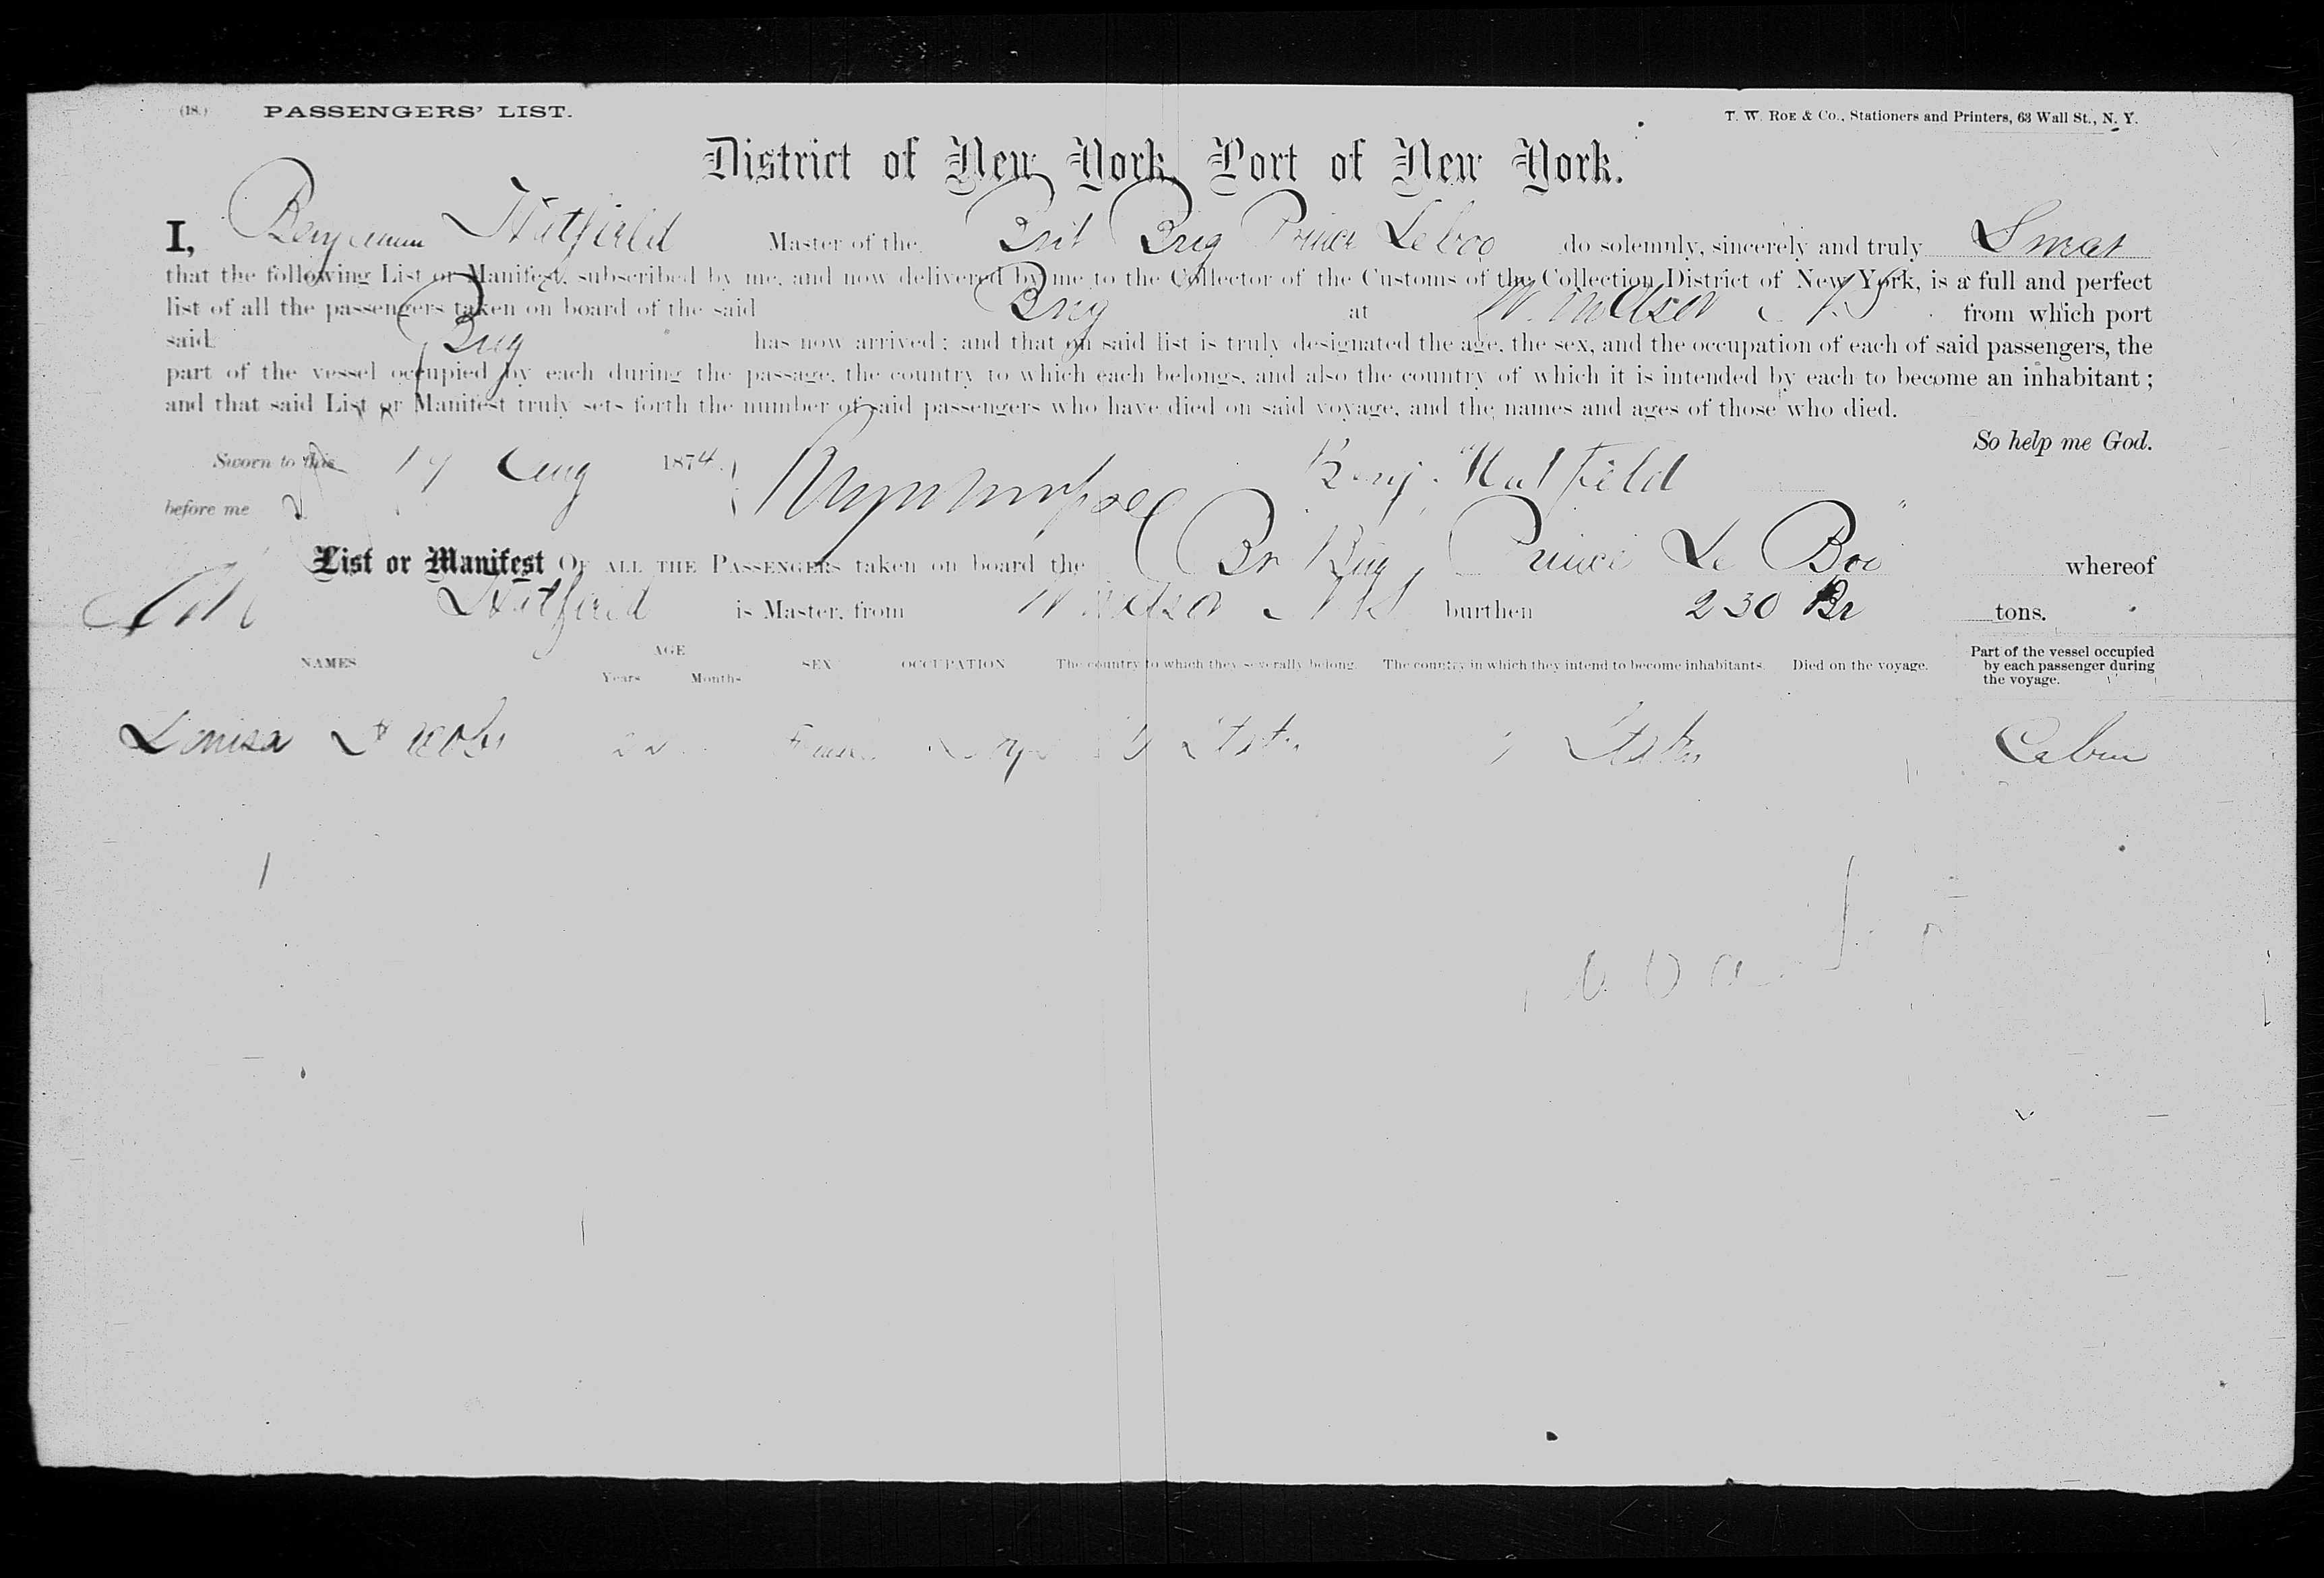 (18.) PASSENGERS' LIST. T. W. ROE & Co., Stationers and Printers, 63 Wall St., N. Y.
District of New York, Port of New York.
I, Benjamin Hatfield Master of the Brit Brig Prince Leboo do solemnly, sincerely and truly Swear
that the following List or Manifest, subscribed by me, and now delivered by me to the Collector of the Customs of the Collection District of New York, is a full and perfect
list of all the passengers taken on board of the said Brig at Windsor N.S from which port
said Brig has now arrived; and that on said list is truly designated the age, the sex, and the occupation of each of said passengers, the
part of the vessel occupied by each during the passage, the country to which each belongs, and also the country of which it is intended by each to become an inhabitant;
and that said List or Manifest truly sets forth the number of said passengers who have died on said voyage, and the names and ages of those who died.
So help me God.
Sworn to this 19 Aug 1874. Benj. Hatfield
before me
List or Manifest OF ALL THE PASSENGERS taken on board the Br Brig Prince Le Boo whereof
Hatfield is Master, from Windsor NS burthen 230 Br tons.
NAMES AGE Years Months SEX OCCUPATION The country to which they severally belong. The country in which they intend to become inhabitants. Died on the voyage. Part of the vessel occupied by each passenger during the voyage.
Louisa 22 States States Cabin
1